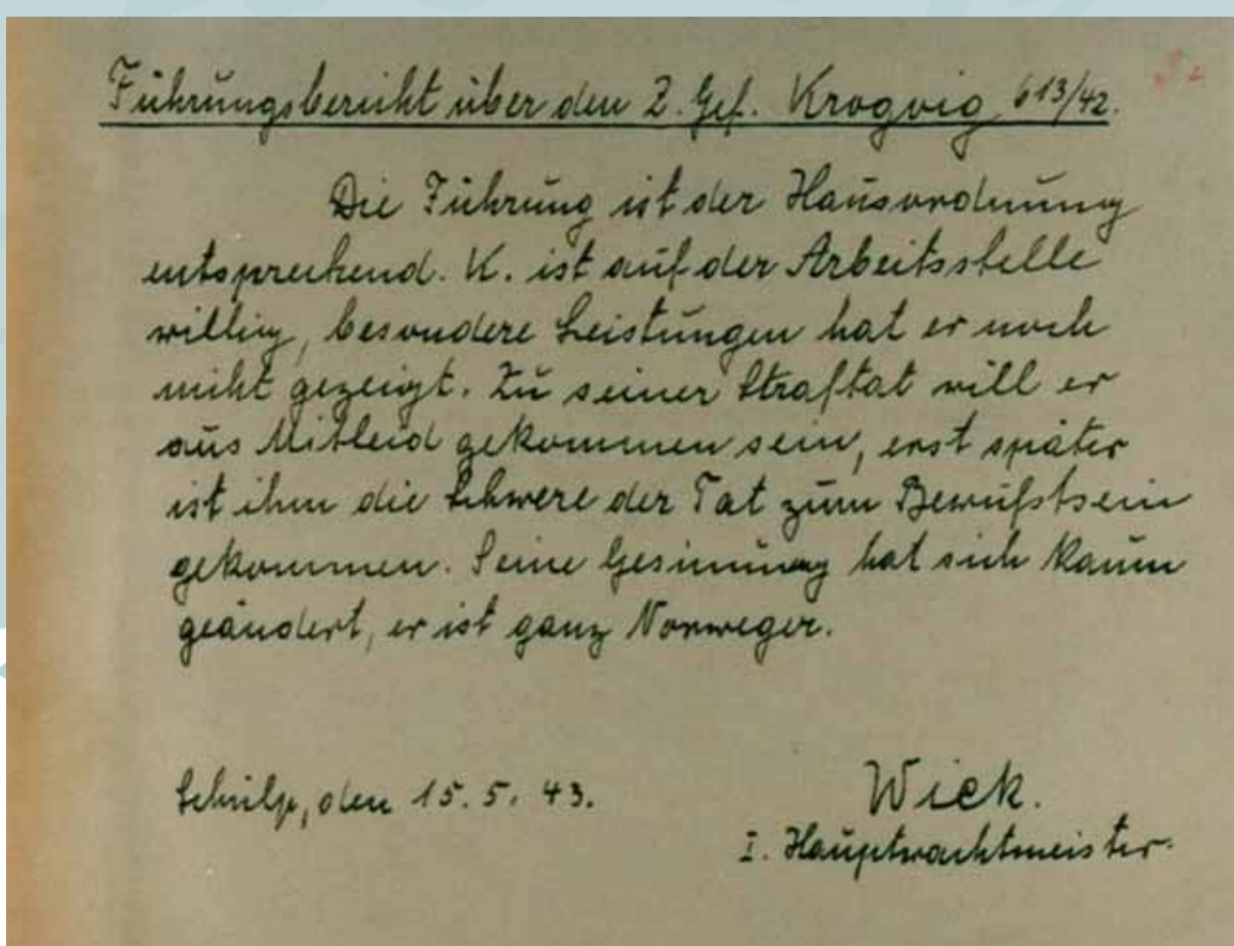 Führungsbericht über den Z. Gef. Krogvig 613/42.
Die Führung ist der Hausordnung
entsprechend. K. ist auf der Arbeitsstelle
willig, besondere Leistungen hat er noch
nicht gezeigt. Zu seiner Straftat will er
aus Mitleid gekommen sein, erst später
ist ihm die Schwere der Tat zum Bewußtsein
gekommen. Seine Gesinnung hat sich kaum
geändert, er ist ganz Norweger.
Schülp, den 15. 5. 43.
Wiek.
I. Hauptwachtmeister.